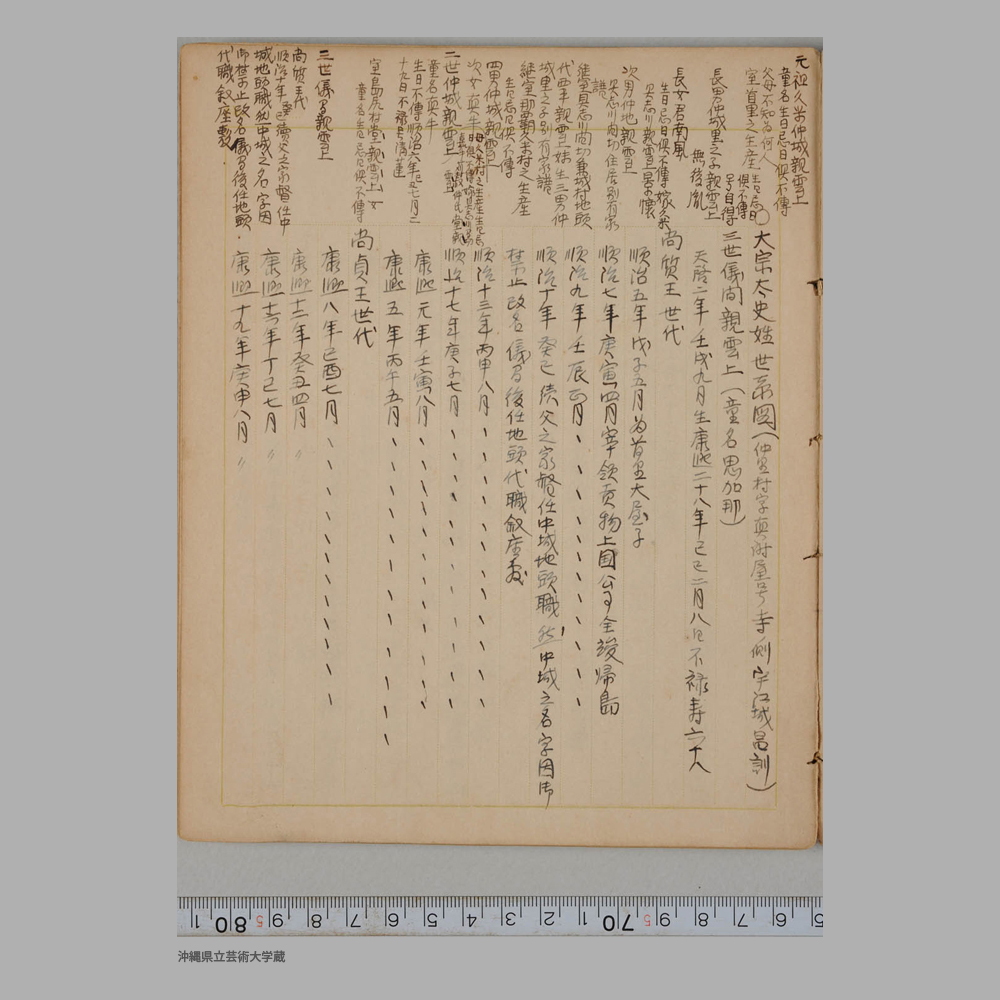 元祖久米仲城親雲上
童名生日忌日俱不傳
父母不知為何人
室首里之生産 生日忌日俱不傳 号自得
長男仲城里之子親雲上
無後胤
長女君南風
生日忌日俱不傳嫁久米
具志川親雲上景懷
次男仲地親雲上
具志川間切住居別有家
譜
継室具志川間切兼城村地頭
代西平親雲上妹生三男仲
城里之子別有家譜
継室那覇久米村之生産
生日忌日俱不傳
四男仲城親雲上
次女真牛
二世仲城親雲上
童名真牛
生日不傳順治六年己丑七月二
十九日不祿号清蓮
室島尻村堂親雲上女
童名生日忌日俱不傳
三世儀間親雲上
尚質王
順治十年癸巳續父之家督任中
城地頭職然中城之名字因
御禁止改名儀間後任地頭
代職叙座敷
〇大宗太史姓世系図(仲里村字真謝屋号寺側宇江城昌訓)
三世儀間親雲上(童名思加那)
天啓二年壬戌九月生康熙二十八年己巳二月八日不禄寿六十八
尚質王世代
順治五年戊子五月為首里大屋子
順治七年庚寅四月宰領貢物上国公事全竣帰島
順治九年壬辰正月、、、、、、、、
順治十年癸巳續父之家督任中城地頭職然中城之名字因御
禁止改名儀間後任地頭代職叙座敷
順治十三年丙申八月、、、、、、、
順治十七年庚子七月、、、、、、、
康熙元年壬寅八月、、、、、、、
康熙五年丙午五月、、、、、、、
尚貞王世代
康熙八年己酉七月、、、、、、、
康熙十二年癸丑四月〃
康熙十六年丁巳七月〃
康熙十九年庚申八月〃
80 9 8 7 6 5 4 3 2 1 70 9 8 7 6 5
沖縄県立芸術大学蔵